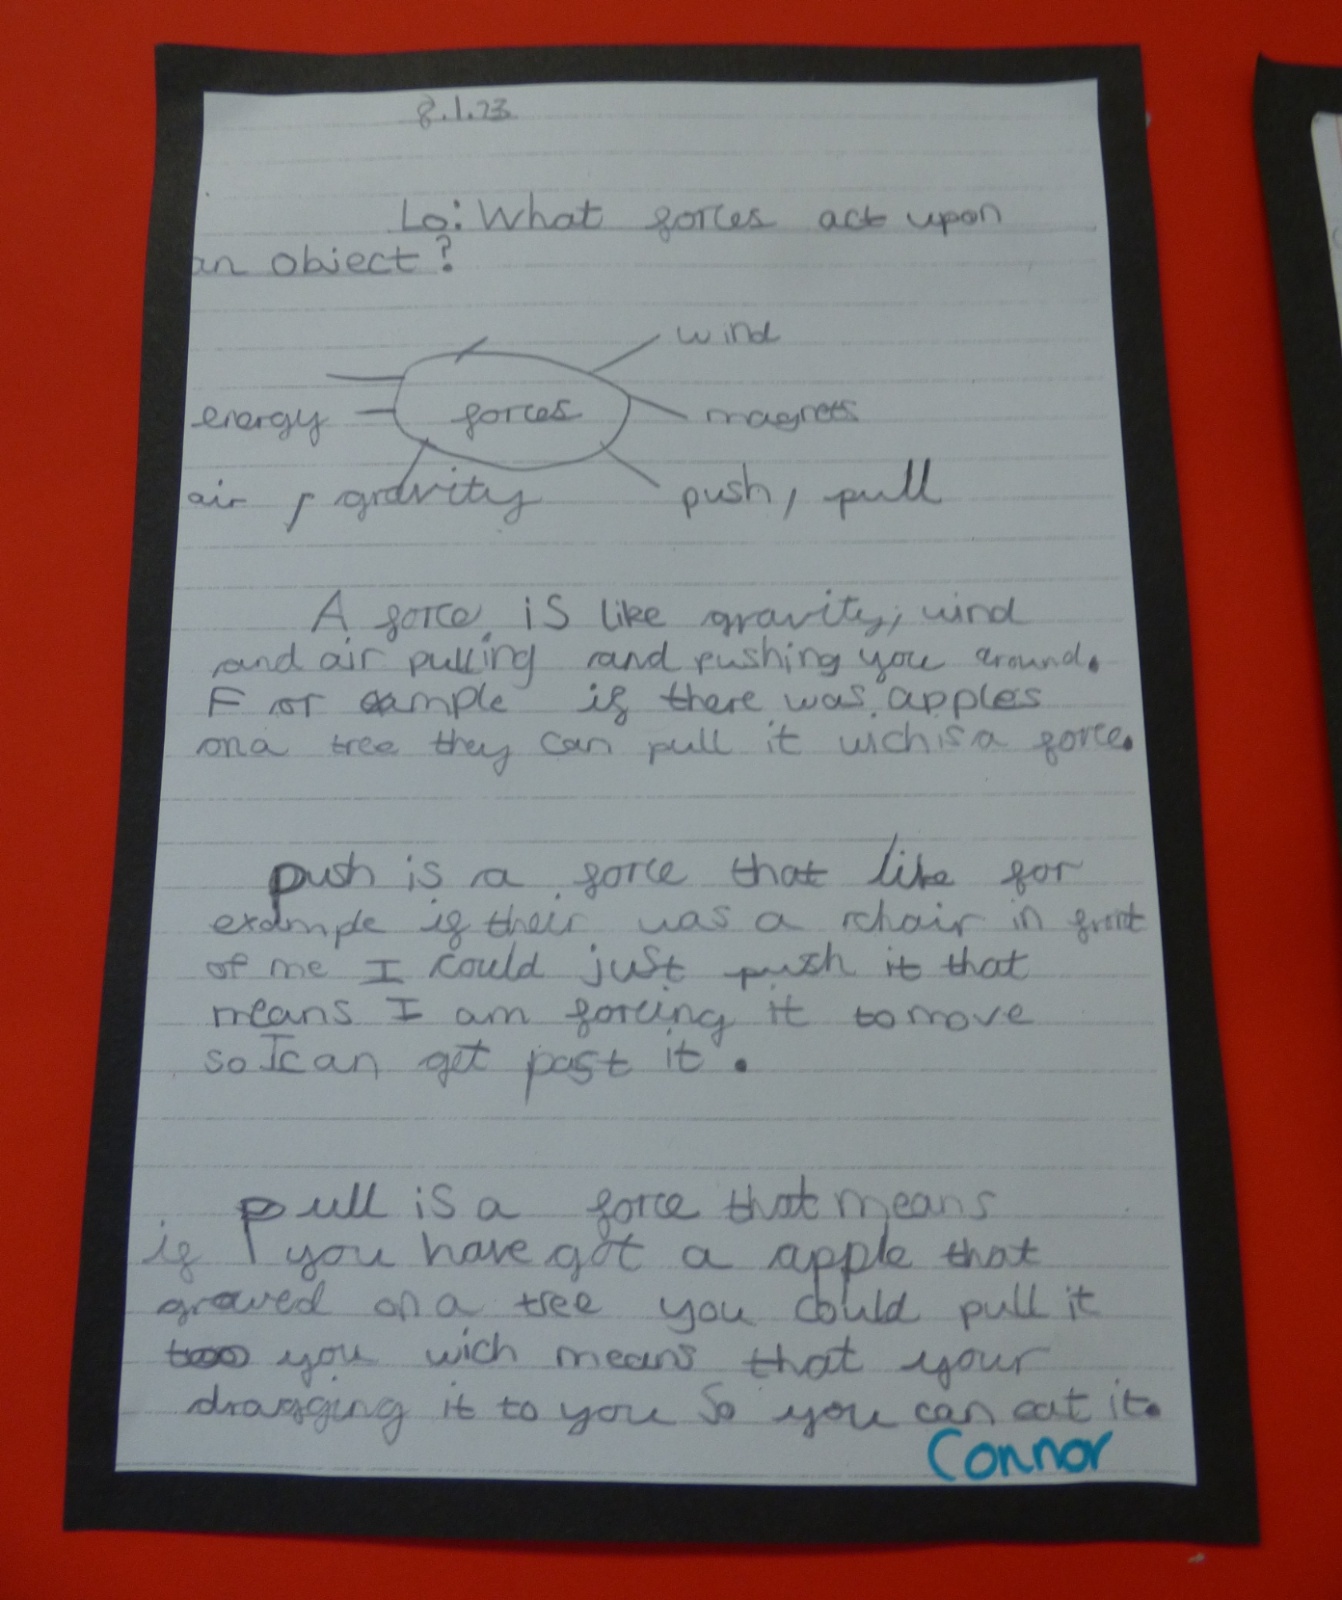 8.1.23
Lo: What forces act upon
an object?
wind
energy
forces
magnets
air, gravity
push, pull
A force is like gravity, wind
and air pulling and pushing you around.
For example if there was apples
on a tree they can pull it wich is a force.
push is a force that like for
example if their was a chair in front
of me I could just push it that
means I am forcing it to move
so I can get past it.
pull is a force that means
if you have got a apple that
growed on a tree you could pull it
you wich means that your
dragging it to you So you can eat it.
Connor